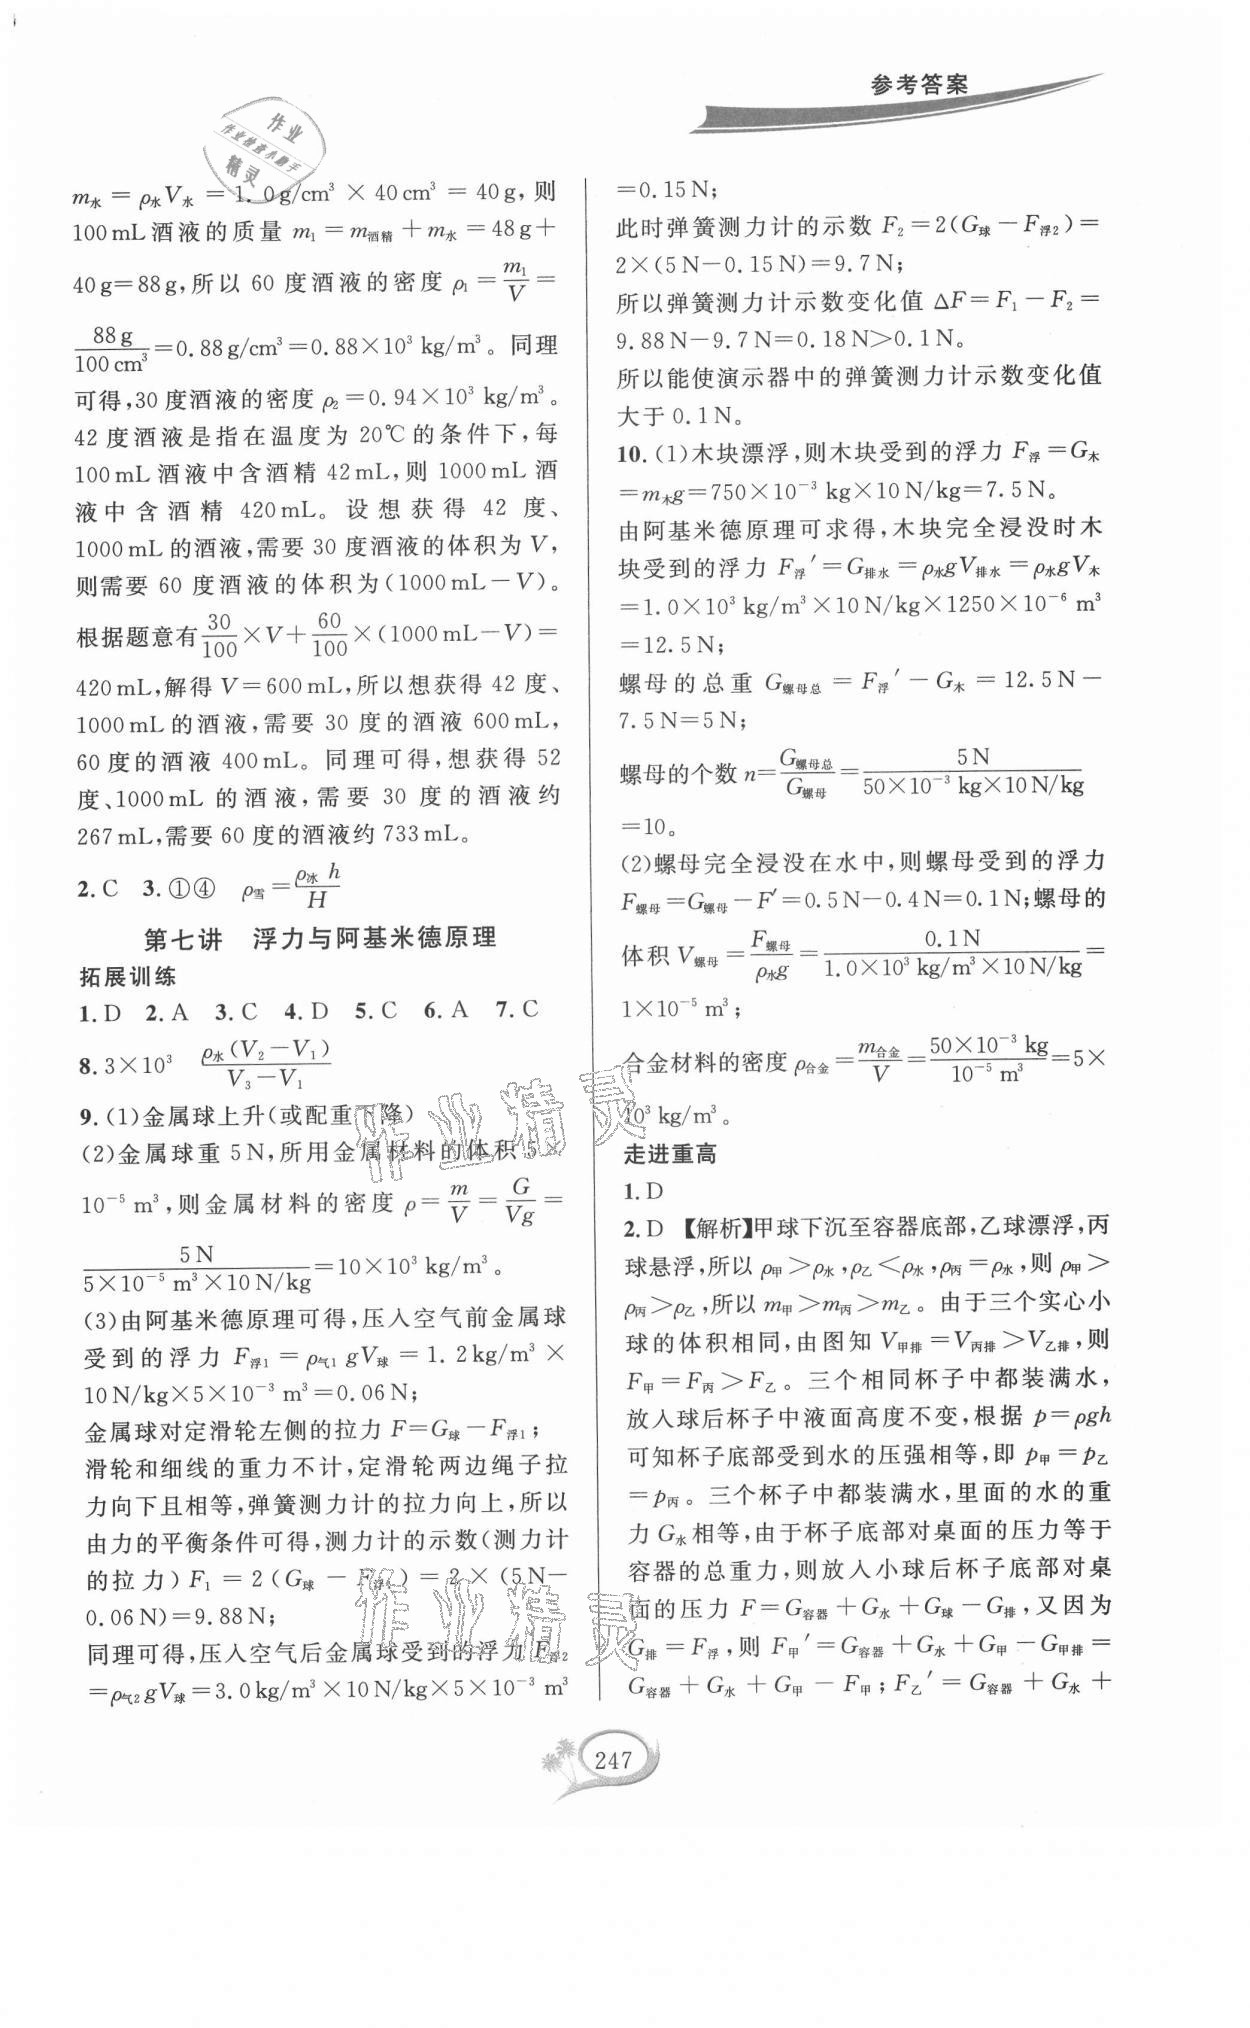 参考答案
作业
作业检查小助手
精灵
m水 = ρ水V水 = 1.0g/cm³ × 40cm³ = 40g, 则
100mL酒液的质量 m₁=m酒精+m水=48g+
40g=88g,所以 60 度酒液的密度 ρ₁=m₁/V=
88g/100cm³=0.88g/cm³=0.88×10³kg/m³。同理
可得,30度酒液的密度 ρ₂=0.94×10³kg/m³。
42度酒液是指在温度为20℃的条件下,每
100mL酒液中含酒精42mL,则1000mL酒
液中含酒精 420mL。设想获得 42 度、
1000mL的酒液,需要30度酒液的体积为V,
则需要60度酒液的体积为(1000mL-V)。
根据题意有30/100×V+60/100×(1000mL-V)=
420mL,解得V=600mL,所以想获得42度、
1000mL的酒液,需要30度的酒液600mL,
60度的酒液400mL。同理可得,想获得52
度、1000mL的酒液,需要30度的酒液约
267mL,需要60度的酒液约733mL。
2.C 3.①④ ρ雪=ρ冰h/H
第七讲 浮力与阿基米德原理
拓展训练
1.D 2.A 3.C 4.D 5.C 6.A 7.C
8.3×10³ ρ水(V₂-V₁)/V₃-V₁
9.(1)金属球上升(或配重下降)
(2)金属球重5N,所用金属材料的体积5×
10⁻⁵m³,则金属材料的密度 ρ=m/V=G/Vg=
5N/5×10⁻⁵m³×10N/kg=10×10³kg/m³。
(3)由阿基米德原理可得,压入空气前金属球
受到的浮力 F浮1=ρ气1gV球=1.2kg/m³×
10N/kg×5×10⁻³m³=0.06N;
金属球对定滑轮左侧的拉力F=G球-F浮1;
滑轮和细线的重力不计,定滑轮两边绳子拉
力向下且相等,弹簧测力计的拉力向上,所以
由力的平衡条件可得,测力计的示数(测力计
的拉力)F₁=2(G球-F浮1)=2×(5N-
0.06N)=9.88N;
同理可得,压入空气后金属球受到的浮力F浮2
=ρ气2gV球=3.0kg/m³×10N/kg×5×10⁻³m³
=0.15N;
此时弹簧测力计的示数F₂=2(G球-F浮2)=
2×(5N-0.15N)=9.7N;
所以弹簧测力计示数变化值ΔF=F₁-F₂=
9.88N-9.7N=0.18N>0.1N。
所以能使演示器中的弹簧测力计示数变化值
大于0.1N。
10.(1)木块漂浮,则木块受到的浮力F浮=G木
=m木g=750×10⁻³kg×10N/kg=7.5N。
由阿基米德原理可求得,木块完全浸没时木
块受到的浮力F浮′=G排水=ρ水gV排水=ρ水gV木
=1.0×10³kg/m³×10N/kg×1250×10⁻⁶m³
=12.5N;
螺母的总重G螺母总=F浮′-G木=12.5N-
7.5N=5N;
螺母的个数n=G螺母总/G螺母=5N/50×10⁻³kg×10N/kg
=10。
(2)螺母完全浸没在水中,则螺母受到的浮力
F螺母=G螺母-F′=0.5N-0.4N=0.1N;螺母的
体积V螺母=F螺母/ρ水g=0.1N/1.0×10³kg/m³×10N/kg=
1×10⁻⁵m³;
合金材料的密度ρ合金=m合金/V=50×10⁻³kg/10⁻⁵m³=5×
10³kg/m³。
走进重高
1.D
2.D 【解析】甲球下沉至容器底部,乙球漂浮,丙
球悬浮,所以ρ甲>ρ水,ρ乙<ρ水,ρ丙=ρ水,则ρ甲>
ρ丙>ρ乙,所以m甲>m丙>m乙。由于三个实心小
球的体积相同,由图知V甲排=V丙排>V乙排,则
F甲=F丙>F乙。三个相同杯子中都装满水,
放入球后杯子中液面高度不变,根据p=ρgh
可知杯子底部受到水的压强相等,即p甲=p乙
=p丙。三个杯子中都装满水,里面的水的重
力G水相等,由于杯子底部对桌面的压力等于
容器的总重力,则放入小球后杯子底部对桌
面的压力F=G容器+G水+G球-G排,又因为
G排=F浮,则F甲′=G容器+G水+G甲-G甲排=
G容器+G水+G甲-F甲;F乙′=G容器+G水+
作业精灵
作业精灵
247